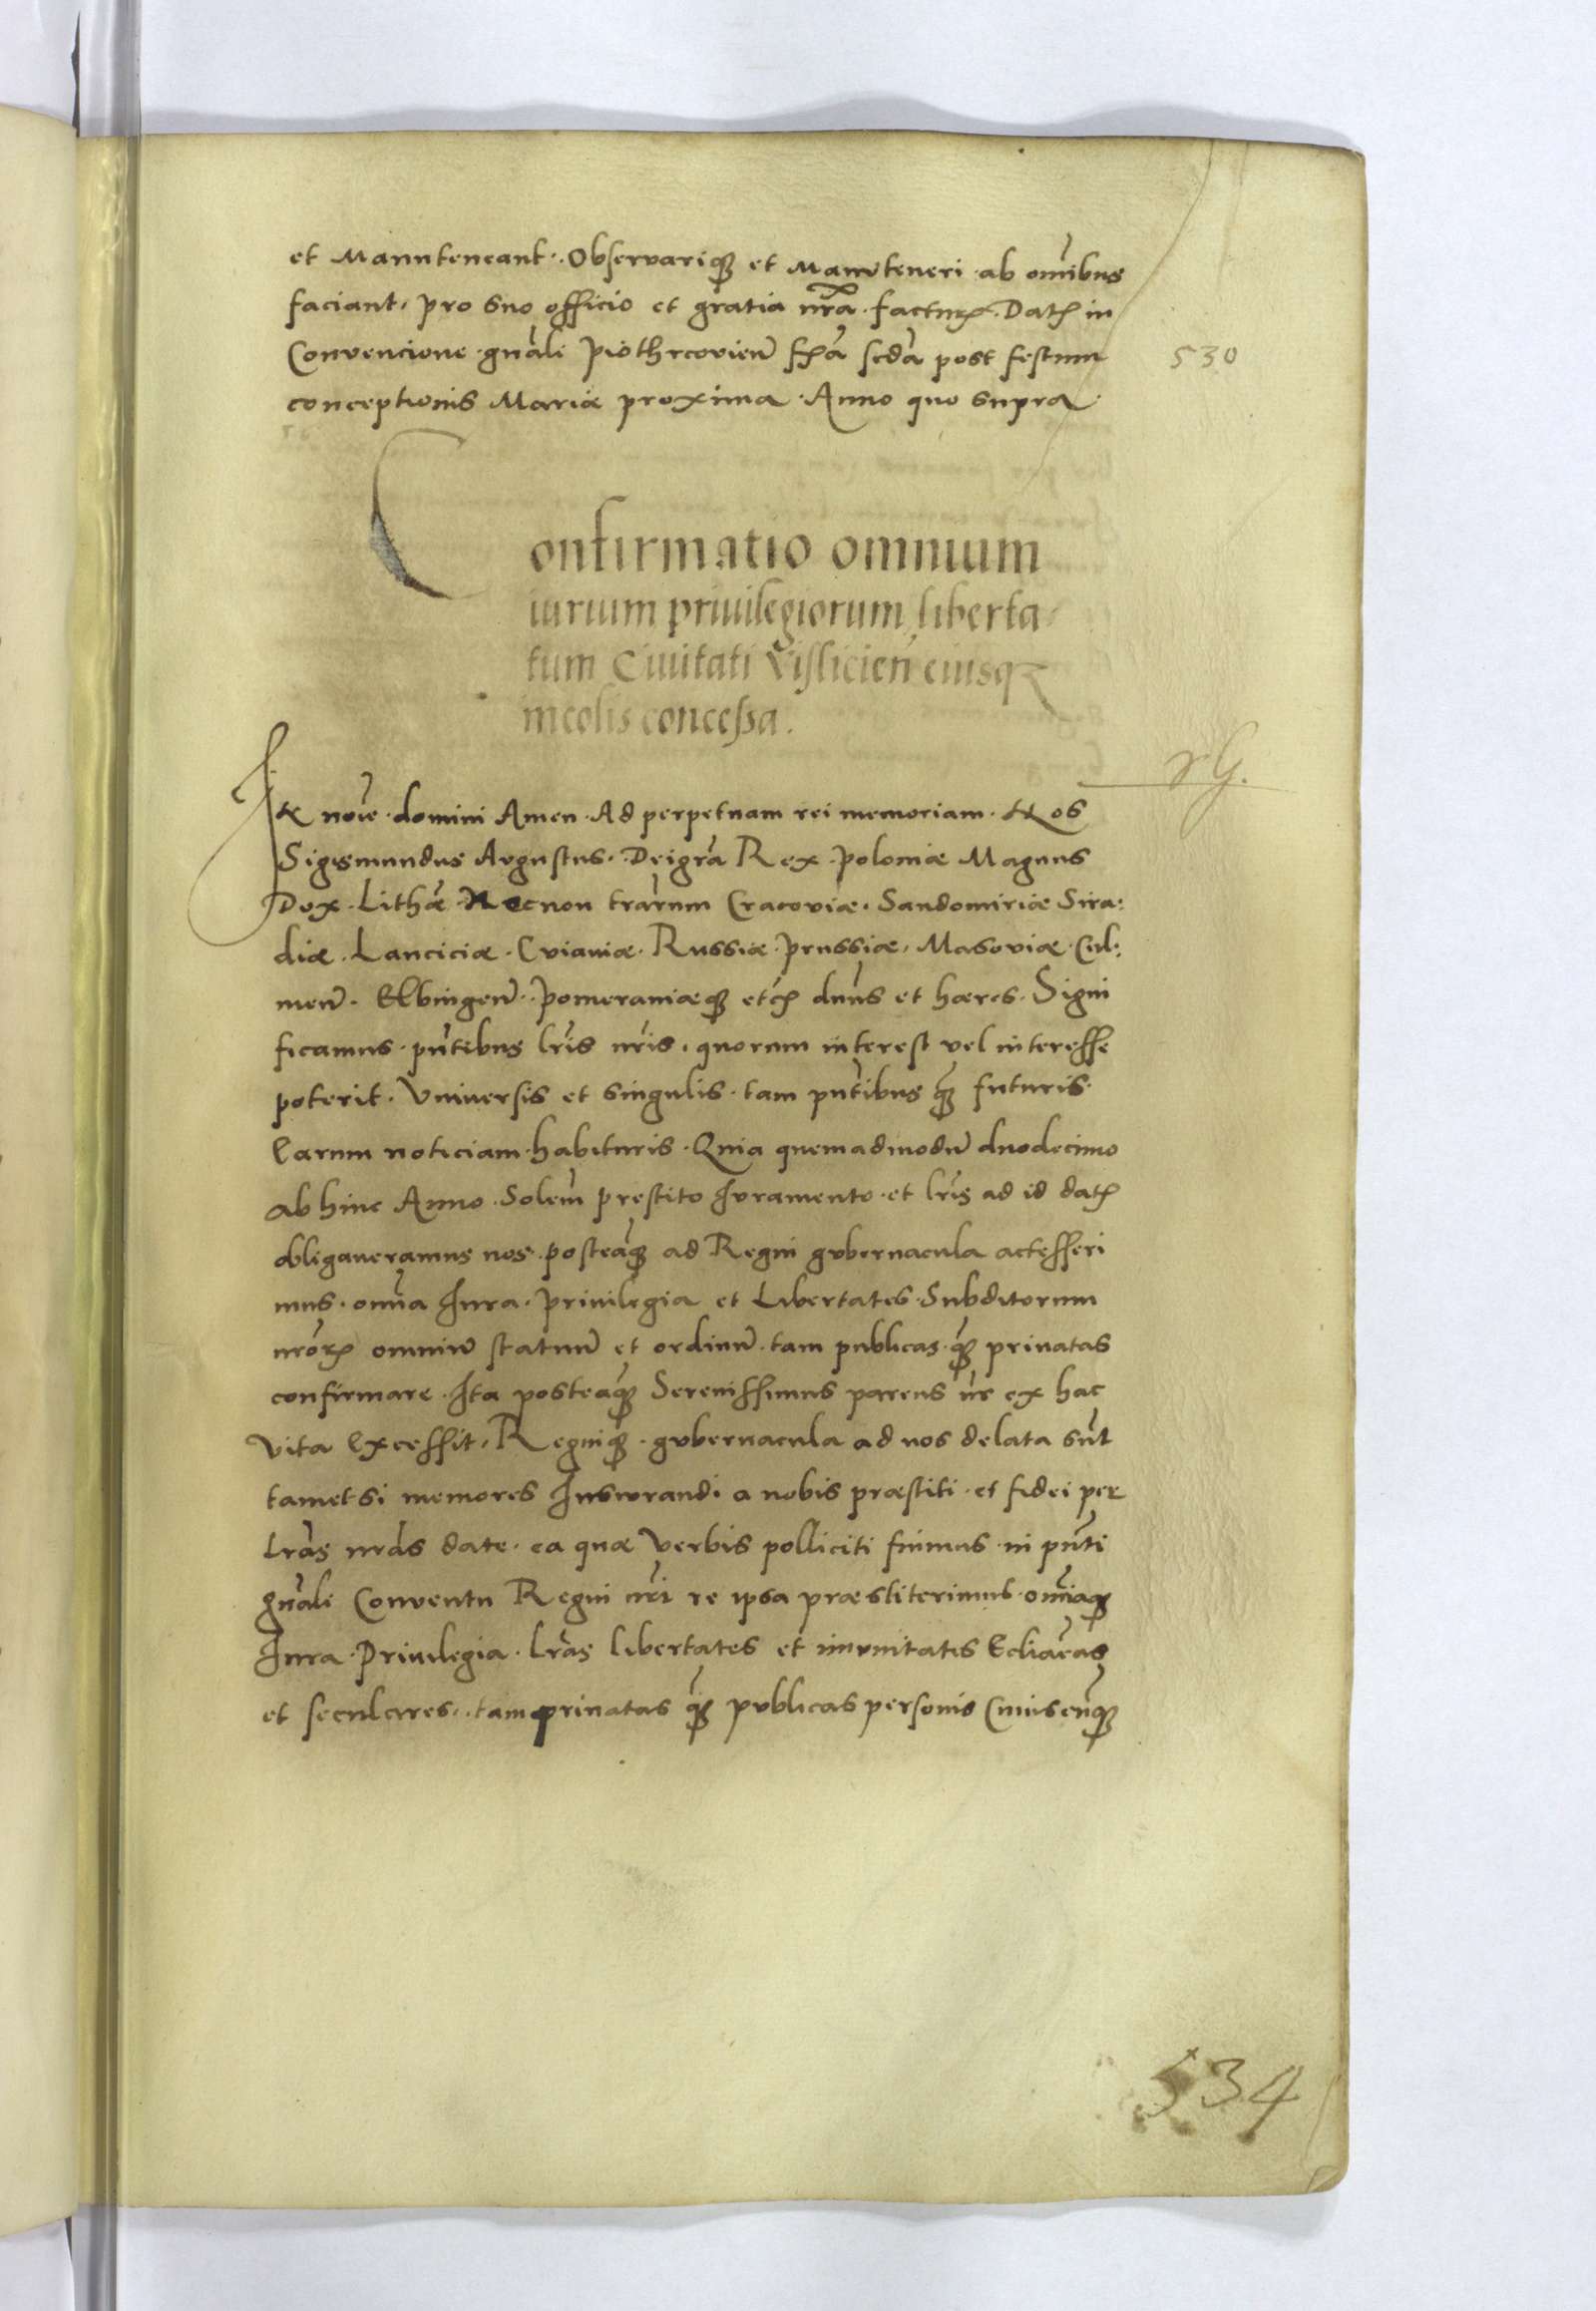 et Manuteneant. Observariq3 et Manuteneri ab om̃ibus
faciant, pro suo officio et gratia nr̃a facturꝝ. Datꝭ in
Convencione gnãli Piothrcovien̄ fr̃ia scd̃a post festum
530
conceptionis Mariæ proxima. Anno quo supra.
Confirmatio omnium
iurium priuilegiorum, liberta-
tum Ciuitati Visliciẽn eiusq3
incolis concessa.
IN noĩe domini Amen. Ad perpetuam rei memoriam. Nos
Sigismundus Augustus. Dei gr̃a Rex Poloniæ Magnus
Dux Lithũæ Necnon trãrum Cracoviæ. Sandomiriæ Sira:
diæ. Lanciciæ. Cuiaviæ. Russiæ Prussiæ. Masoviæ. Cul:
men̄. Elbingen̄. Pomeraniæq3 etcꝭ dnũs et hæres. Signi
ficamus. pñtibus lr̃is nr̃is. quorum interest vel interesse
poterit. Vniversis et singulis. tam pñtibus q̃3 futuris.
Earum noticiam habituris. Quia quemadmodũ duodecimo
abhinc Anno Solem̃ prestito Iuramento et lr̃is ad id datꝭ
obligaveramus nos posteaq̃3 ad Regni gubernacula accesseri
mus. om̃ia Iura. Priuilegia et Libertates Subditorum
nr̃oꝝ omniũ statuũ et ordinũ. tam publicas q̃3 priuatas
confirmare. Ita posteaq̃3 Serenissimus parens nr̃ ex hac
vita excessit, Regniq3 gubernacula ad nos delata sũt
tametsi memores Iusiurandi a nobis præstiti et fidei per
Lr̃as nr̃as date. ea quæ verbis polliciti fuimus in pñti
gnãli Conventu Regni nr̃i re ipsa præstiterimus. om̃iaq3
Iura Priuilegia. Lr̃as libertates et imunitates Ecliãcas
et seculares. tam priuatas q̃3 publicas personis Cuiuscũq3
534